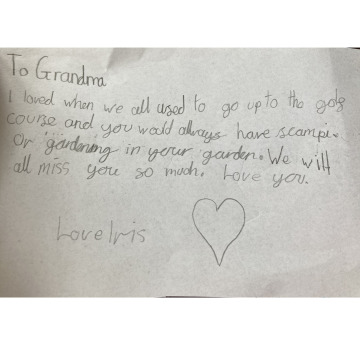 To Grandma
I loved when we all used to go up to the golf
course and you would always have scampi.
Or gardening in your garden. We will
all miss you so much. Love you.
Love Iris